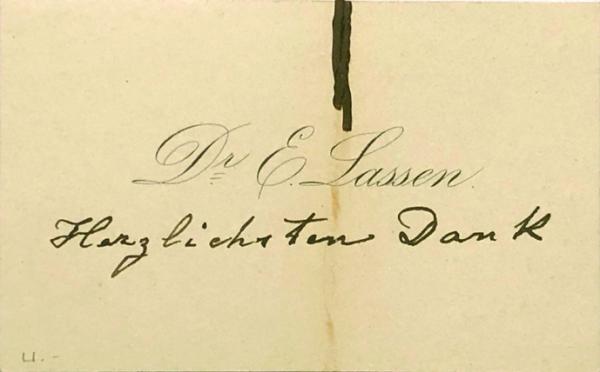 Dr E. Lassen.
Herzlichsten Dank